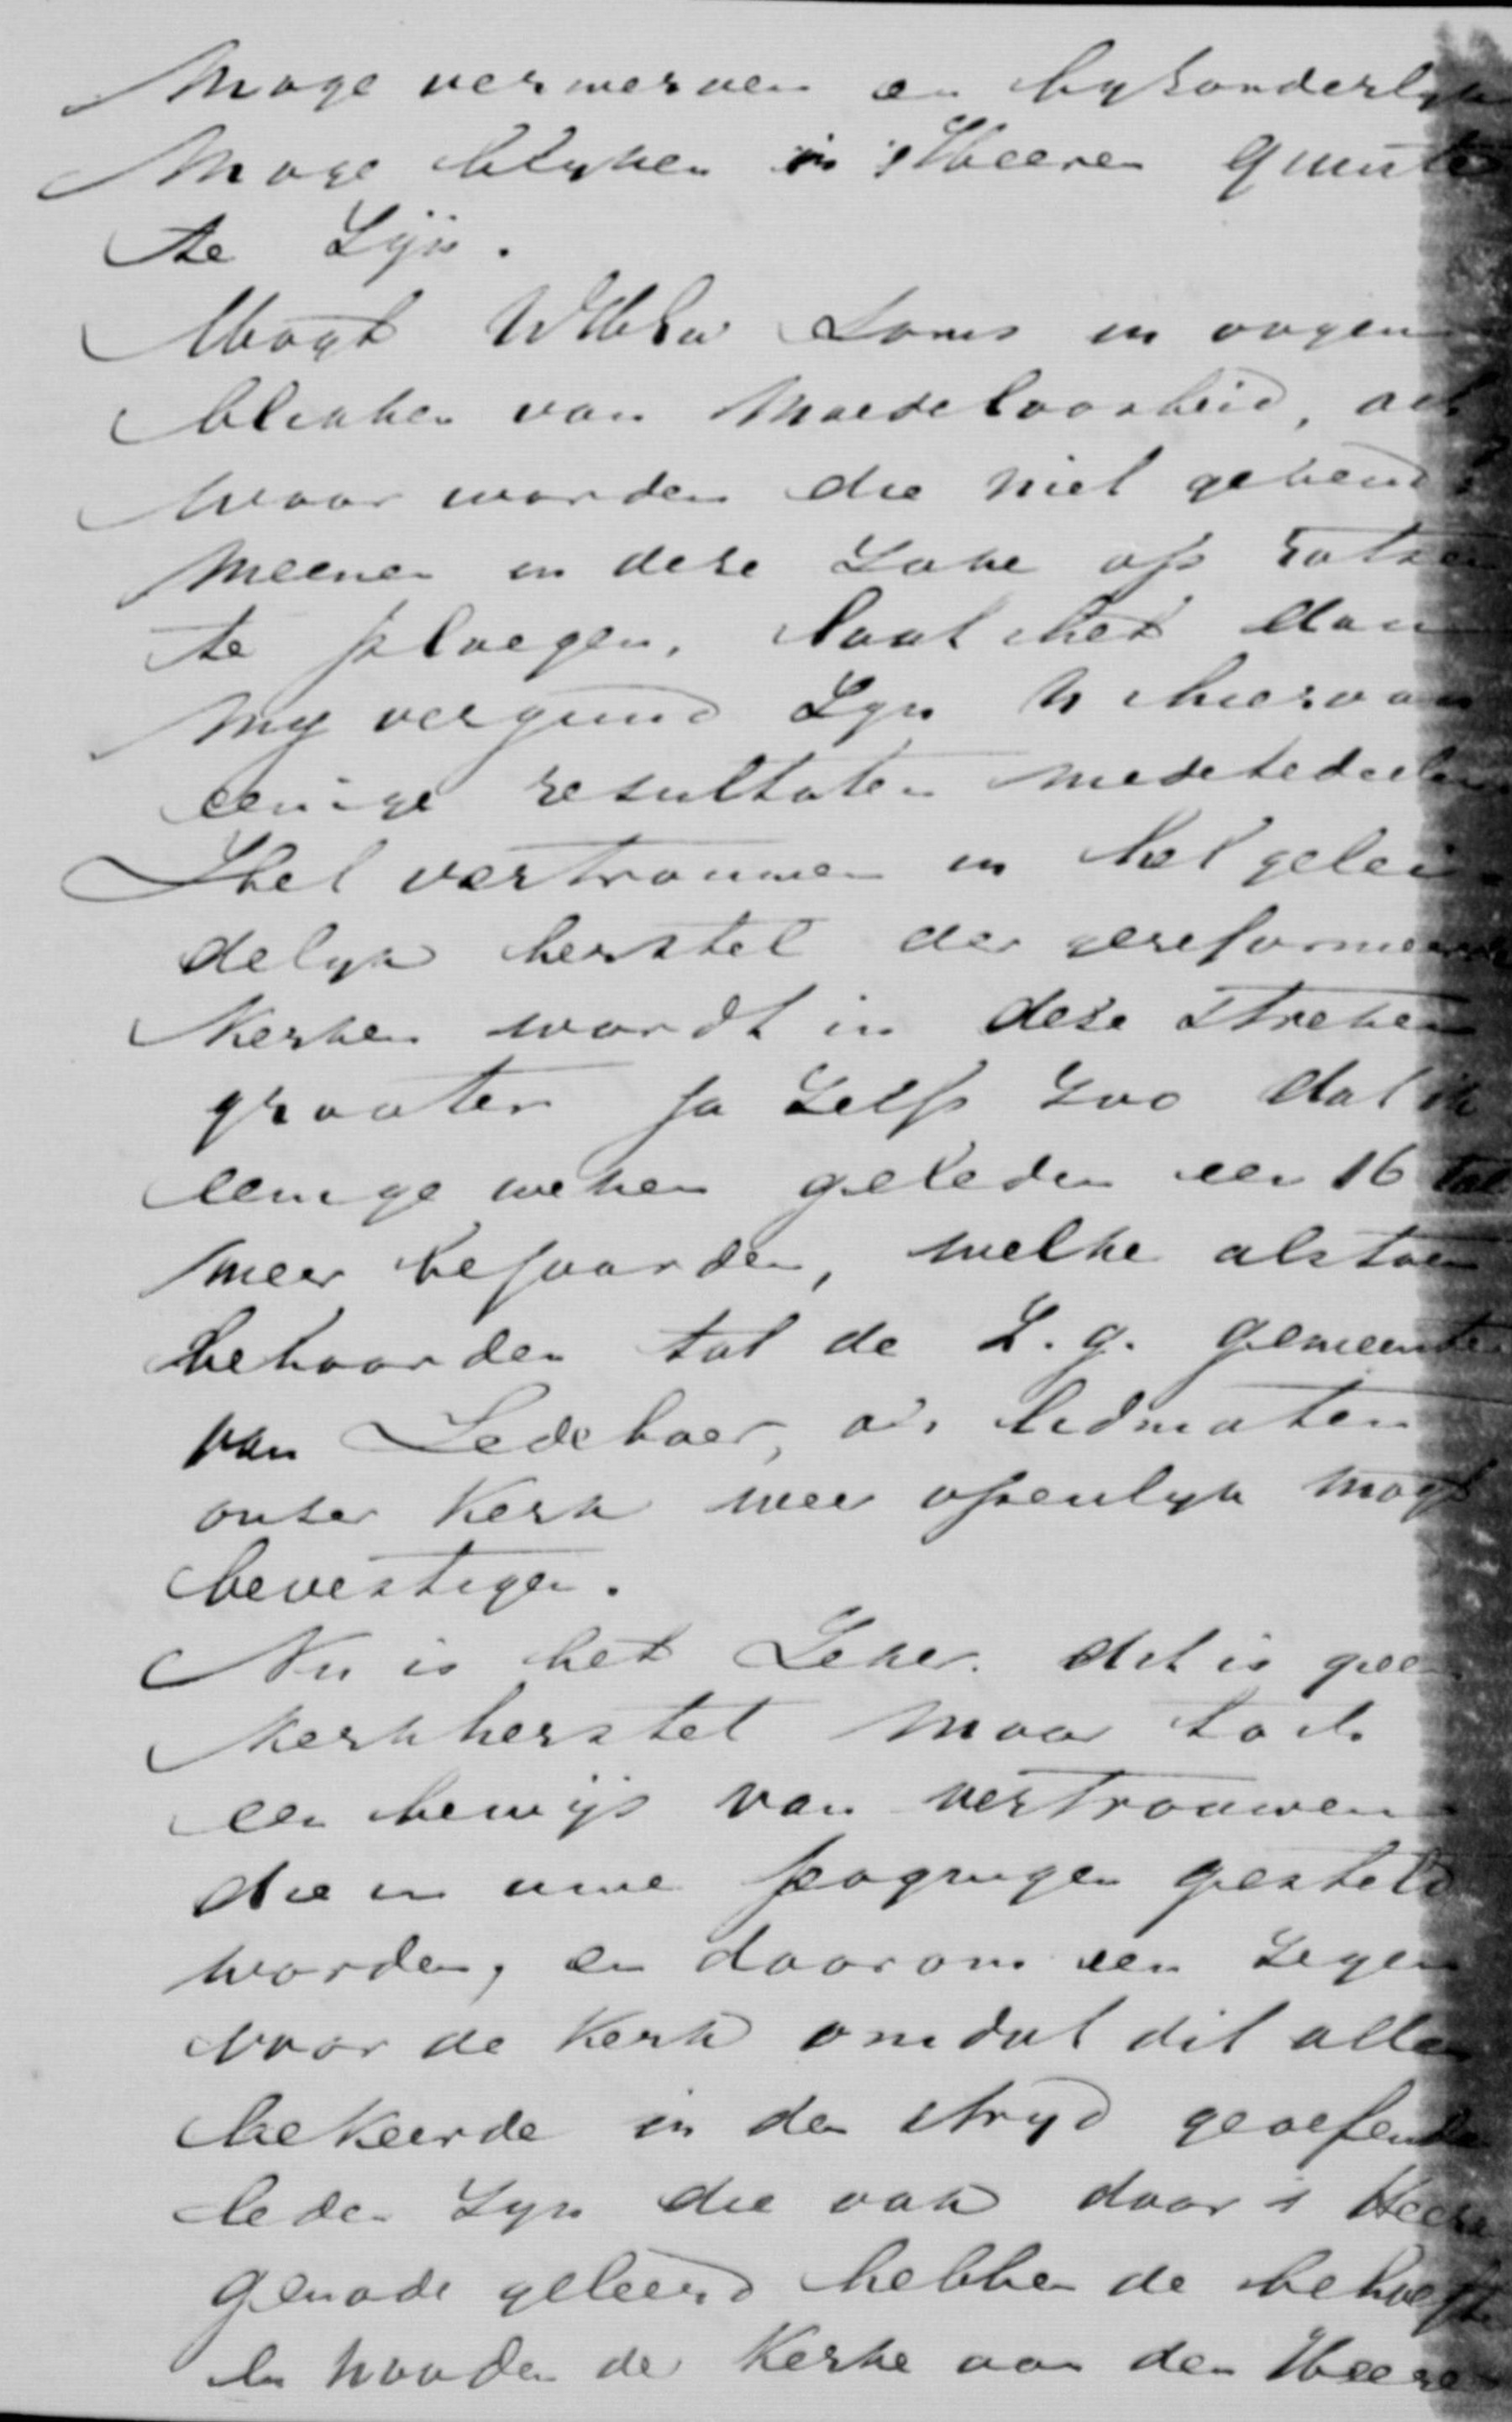 Moge verwerven en byzonderlyk
Moge blyken in 's Heeren gunste
te Zyn.
Mogt WelEw Soms in oogen
blikken van Moedeloosheid, ach
waar worden die niet gekend
Meenen in deze Zake op rotsen
te ploegen, laat het dan
My vergund Zyn U hiervan
eenige resultaten mede te deelen
Het vertrouwen in het gelei
delyk herstel der gereformeerde
Kerken wordt in deze Streken
grooter ja Zelfs Zoo dat ik
eenige weken geleden een 16 tal
meer bejaarden, welke alstoen
behoorden tot de Z.g. gemeente
van Ledeboer, als lidmaten
onser Kerk weer openlyk mogt
bevestigen.
Nu is het Zeker dit is geen
Kerkherstel Maar toch
een bewijs van vertrouwen
die in uwe pogingen gesteld
worden, en daarom een Zegen
voor de Kerk omdat dit allen
bekeerde in den stryd geoefende
leden Zyn die ook door 's Heere
genade geleerd hebben de behoefte
en nooden der Kerke aan den Heere